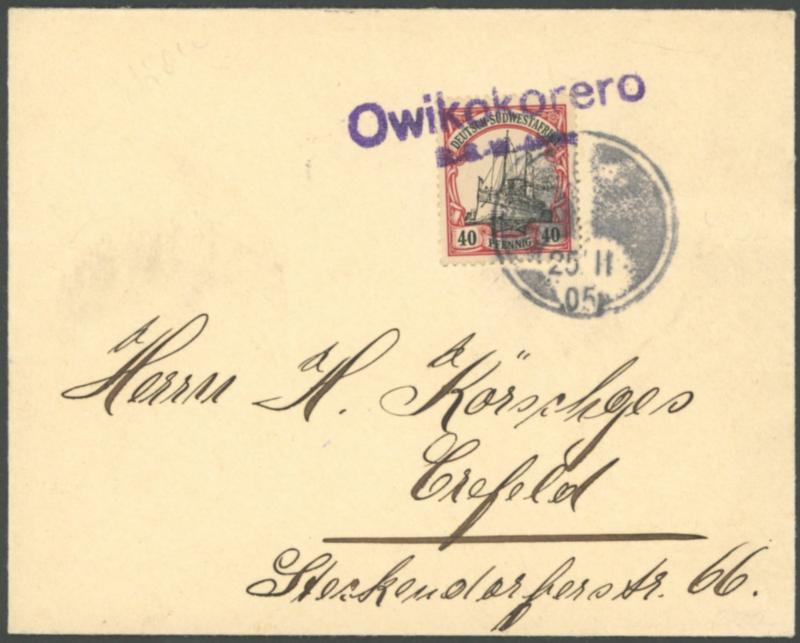 Owikokorero
D.S.W. Afrika
DEUTSCH-SÜDWESTAFRIKA
40 PFENNIG 40
25 11
05
Herrn H. Körschges
Crefeld
Steckendorferstr. 66.